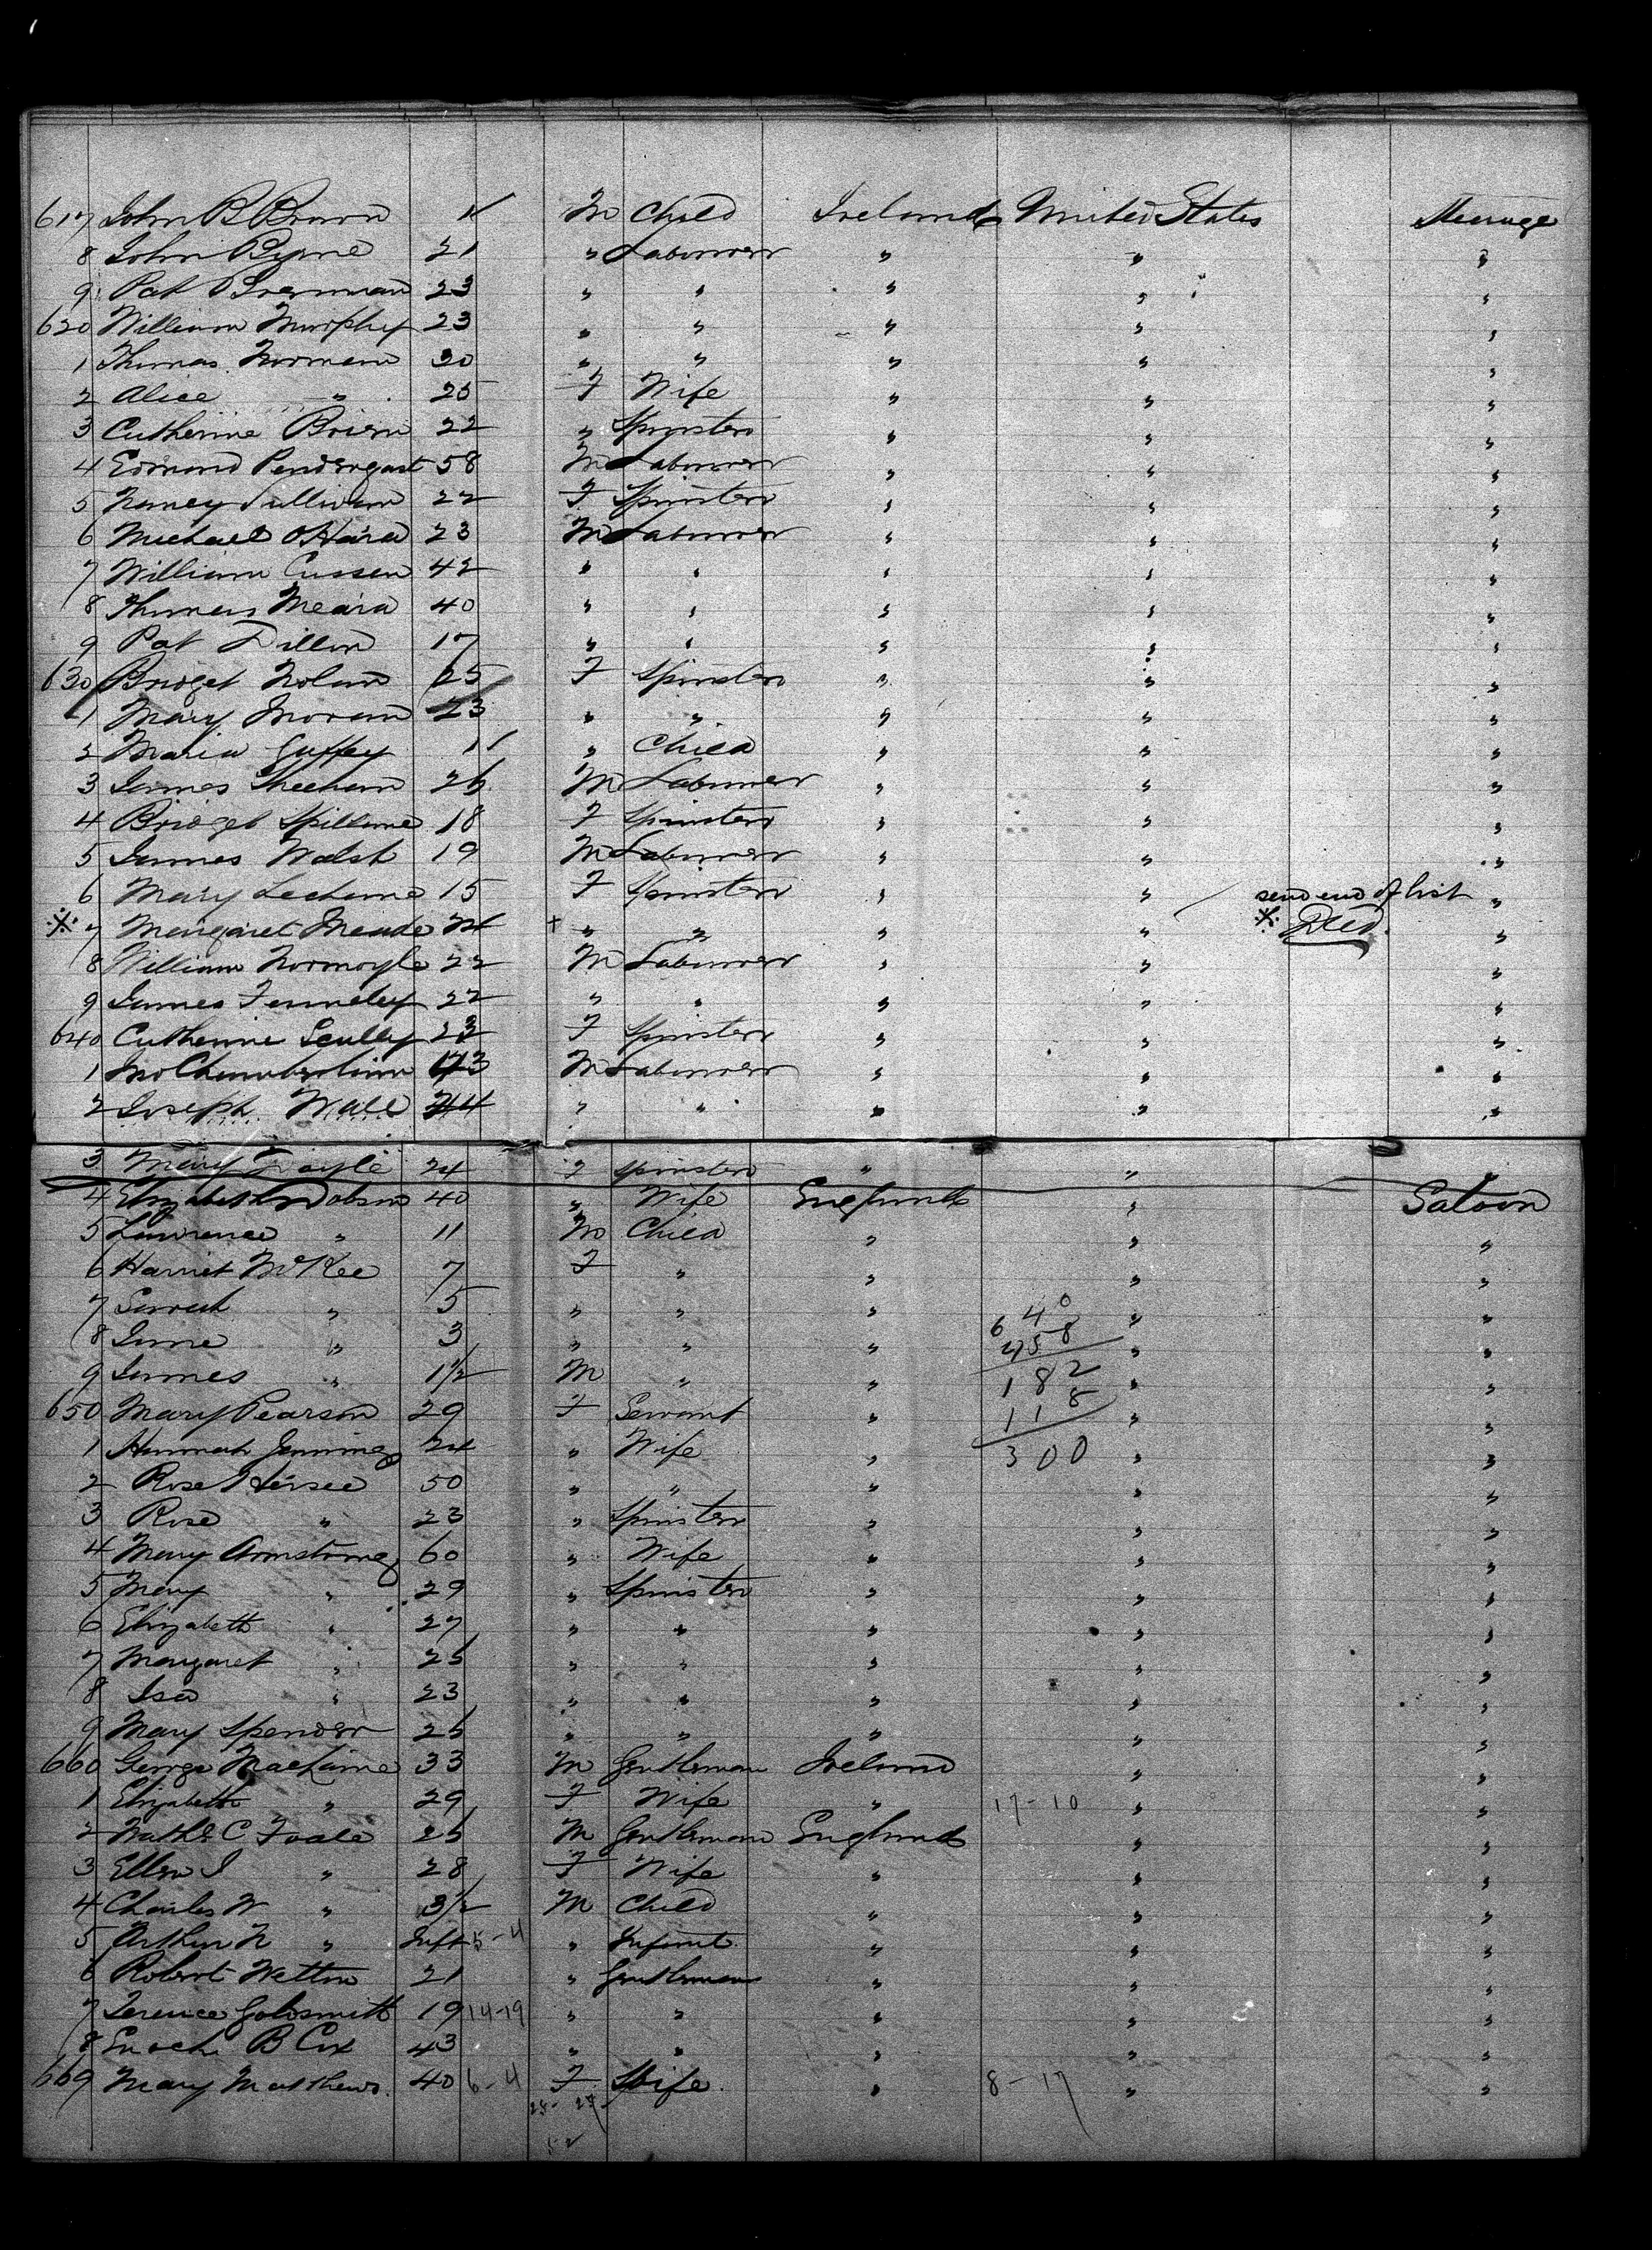 617 John B Brown 11 M Child Ireland United States Steerage
8 John Byrne 21 " Labourer " " "
9 Pat Brennan 23 " " " " "
620 William Murphy 23 " " " " "
1 Thomas Norman 30 " " " " "
2 Alice " 25 F Wife " " "
3 Catherine Brien 22 " Spinster " " "
4 Edmond Pendergast 58 M Labourer " " "
5 Nancy Sullivan 22 F Spinster " " "
6 Michael O'Hara 23 M Labourer " " "
7 William Cussen 42 " " " " "
8 Thomas Meara 40 " " " " "
9 Pat Dillon 17 " " " " "
630 Bridget Nolan 25 F Spinster " " "
1 Mary Moran 23 " " " " "
2 Maria Guffey 11 " Child " " "
3 James Sheehan 26 M Labourer " " "
4 Bridget Spillane 18 F Spinster " " "
5 James Walsh 19 M Labourer " " "
6 Mary Lechane 15 F Spinster " " send end of list "
※ 7 Margaret Meade 24 + " " " " ※ Died. "
8 William Normoyle 22 M Labourer " " "
9 James Fenneley 22 " " " " "
640 Catherine Scully 23 F Spinster " " "
1 Jno Chamberlain 43 M Labourer " " "
2 Joseph Wall 44 " " " " "
3 Mary Doyle 24 F Spinster " " "
4 Elizabeth Dobson 40 " Wife England " Saloon
5 Lawrence " 11 M Child " " "
6 Harriet McKee 7 F " " " "
7 Sarah " 5 " " " 640 " "
8 Jane " 3 " " " 458 " "
9 James " 1½ M " " 182 " "
650 Mary Pearson 29 F Servant " 118 " "
1 Hannah Jennings 24 " Wife " 300 " "
2 Rose Hersee 50 " " " " "
3 Rose " 23 " Spinster " " "
4 Mary Armstrong 60 " Wife " " "
5 Mary " 29 " Spinster " " "
6 Elizabeth " 27 " " " " "
7 Margaret " 25 " " " " "
8 Isa " 23 " " " " "
9 Mary Spencer 26 " " " " "
660 George 33 M Gentleman Ireland " "
1 Elizabeth " 29 F Wife " 17-10 " "
2 Nathl C Foale 26 M Gentleman England " "
3 Ellen J " 28 F Wife " " "
4 Charles W " 3½ M Child " " "
5 Arthur N " Inft 5-4 " Infant " " "
6 Robert Welton 21 " Gentleman " " "
7 Terence Goldsmith 19 14-19 " " " " "
8 Enoch B Cox 43 " " " " "
669 Mary Matthews 40 6-4 F Wife " 8-17 " "
25-27
52